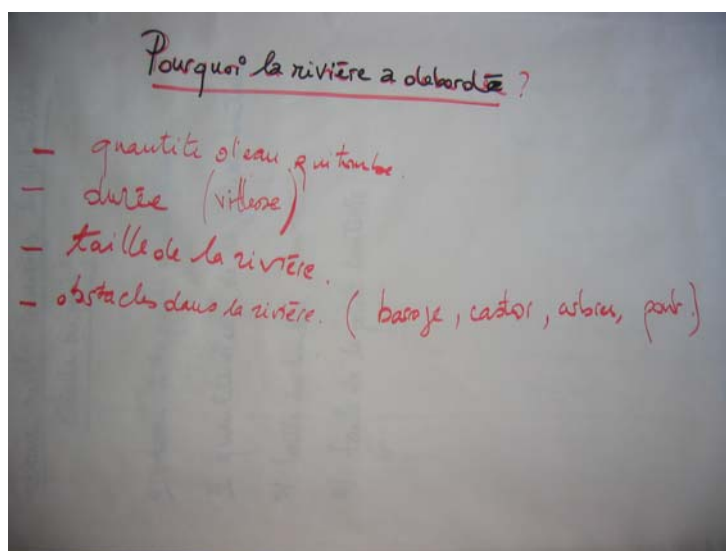 Pourquoi la rivière a débordé ?
- quantité d'eau qui tombe.
- durée (vitesse)
- taille de la rivière.
- obstacles dans la rivière. (barage, castor, arbres, pont.)